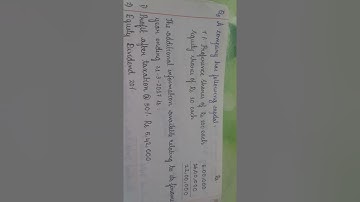 Q. A company has following capital.
Rs
9% Preference Shares of Rs 100 each 6,00,000
Equity shares of Rs 10 each
22,00,000
The additional information available relating to its
year ending 31-3-2007 is
Profit after taxation @ 50% Rs 5,42,000
Equity Dividend 20%